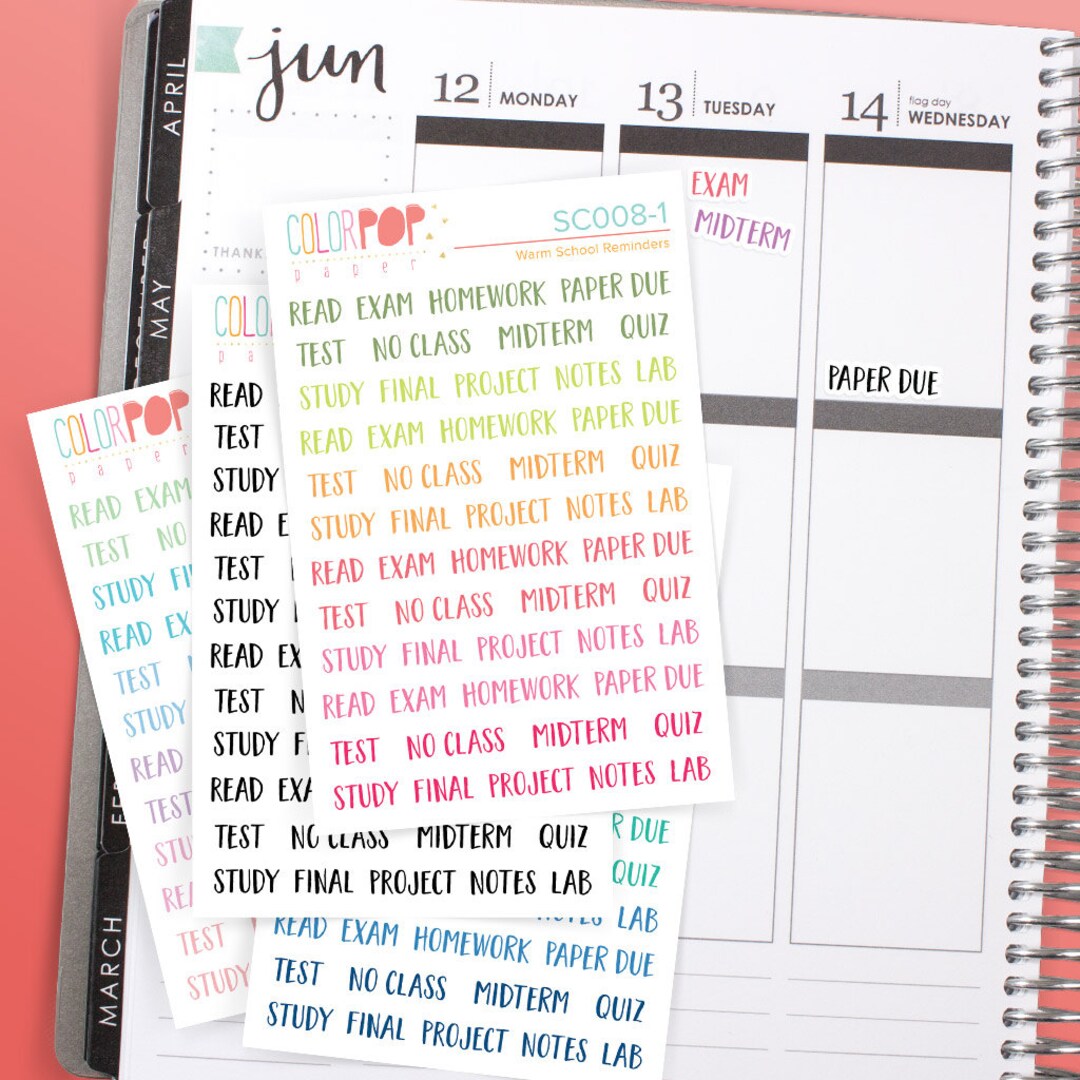 jun
12 MONDAY
13 TUESDAY
14 flag day WEDNESDAY
APRIL
MAY
MARCH
THANK
EXAM
MIDTERM
PAPER DUE
COLORPOP
paper
SC008-1
Warm School Reminders
READ EXAM HOMEWORK PAPER DUE
TEST NO CLASS MIDTERM QUIZ
STUDY FINAL PROJECT NOTES LAB
READ EXAM HOMEWORK PAPER DUE
TEST NO CLASS MIDTERM QUIZ
STUDY FINAL PROJECT NOTES LAB
READ EXAM HOMEWORK PAPER DUE
TEST NO CLASS MIDTERM QUIZ
STUDY FINAL PROJECT NOTES LAB
READ EXAM HOMEWORK PAPER DUE
TEST NO CLASS MIDTERM QUIZ
STUDY FINAL PROJECT NOTES LAB
COLO
pa
READ
TEST
STUDY
READ E
TEST
STUDY
READ EX
TEST N
STUDY F
READ EXA
TEST NO CLASS MIDTERM QUIZ
STUDY FINAL PROJECT NOTES LAB
COLORPOP
paper
READ EXAM
TEST NO
STUDY FI
READ EX
TEST
STUDY
READ
TEST
STU
REA
TEST
STUDY
R DUE
QUIZ
NOTES LAB
READ EXAM HOMEWORK PAPER DUE
TEST NO CLASS MIDTERM QUIZ
STUDY FINAL PROJECT NOTES LAB